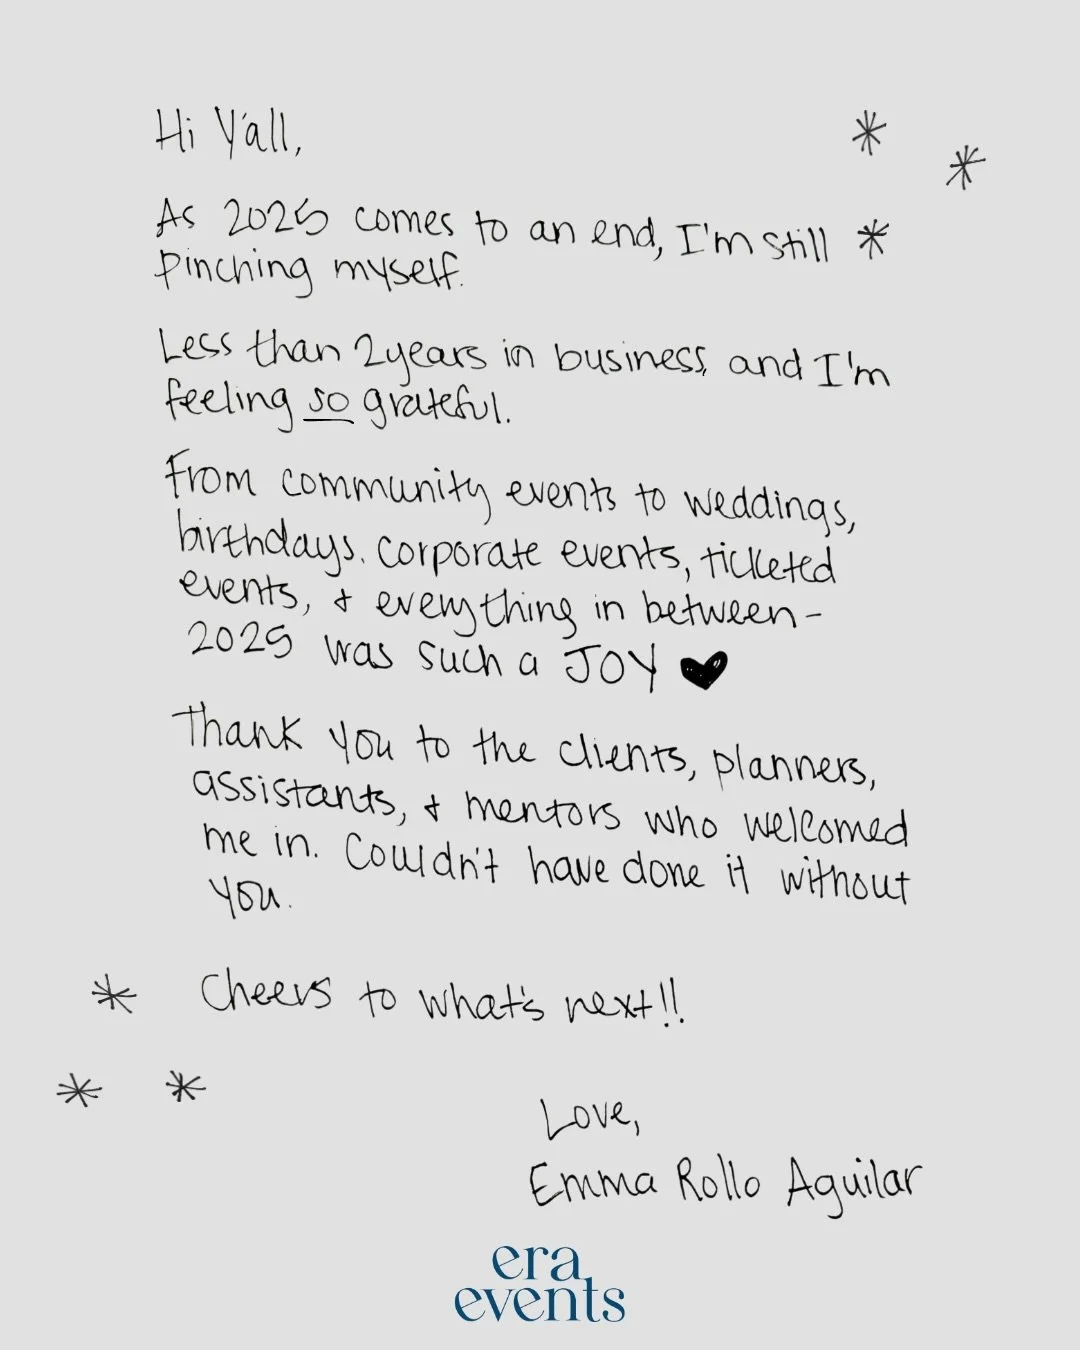 Hi Y'all,
As 2025 comes to an end, I'm still
pinching myself.
Less than 2 years in business, and I'm
feeling so grateful.
From community events to weddings,
birthdays, corporate events, ticketed
events, + everything in between-
2025 was such a JOY ♥
Thank you to the clients, planners,
assistants, + mentors who welcomed
me in. Couldn't have done it without
you.
Cheers to what's next!!
Love,
Emma Rollo Aguilar
era
events